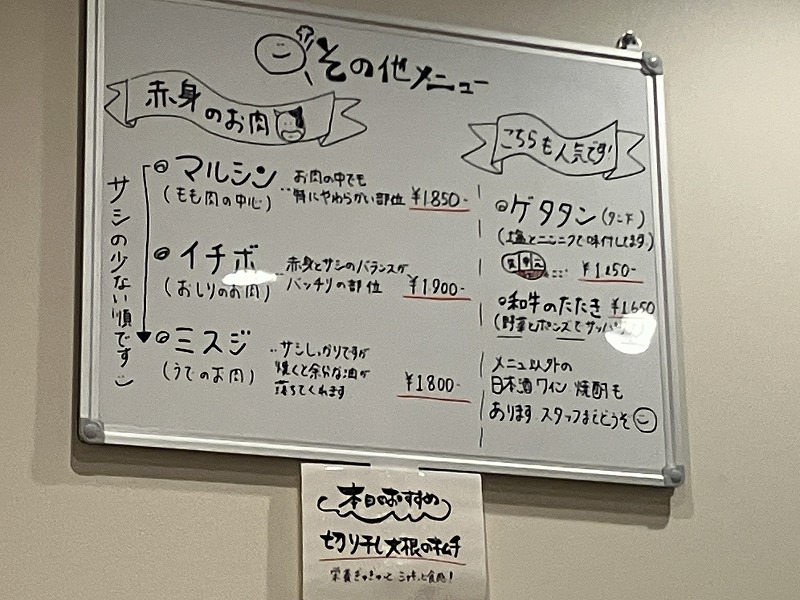 その他メニュー
赤身のお肉
サシの少ない順です
マルシン
(もも肉の中心)
お肉の中でも
特にやわらかい部位
¥1850-
イチボ
(おしりのお肉)
赤身とサシのバランスが
バッチリの部位
¥1900-
ミスジ
(うでのお肉)
サシしっかりですが
焼くと余分な油が
落ちてくれます
¥1800-
こちらも人気です!
ゲタタン(タン下)
(塩とニンニクで味付してます)
¥1150-
和牛のたたき ¥1650
(野菜とポンズでサッパリ
メニュー以外の
日本酒 ワイン 焼酎も
あります スタッフまでどうぞ
本日のおすすめ
切り干し大根のキムチ
栄養ぎゅぎゅっと シャキッと食感!